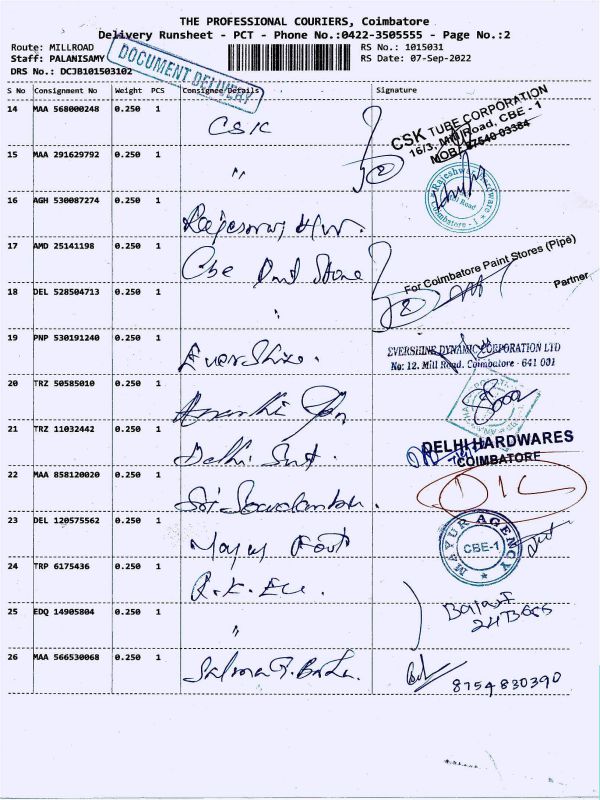 THE PROFESSIONAL COURIERS, Coimbatore
Delivery Runsheet - PCT - Phone No.:0422-3505555 - Page No.:2
Route: MILLROAD
RS No.: 1015031
Staff: PALANISAMY
RS Date: 07-Sep-2022
DRS No.: DCJB101503102
DOCUMENT DELIVERY
S No Consignment No Weight PCS Consignee Details Signature
14 MAA 568000248 0.250 1 CSK
CSK TUBE CORPORATION
16/3, Mill Road, CBE - 1
MOB: 97540-03384
15 MAA 291629792 0.250 1 〃 2
16 AGH 530087274 0.250 1
Rajeshwari Hardware
Mill Road
Coimbatore
17 AMD 25141198 0.250 1 Cbe
For Coimbatore Paint Stores (Pipe)
Partner
18 DEL 528504713 0.250 1 〃 2
19 PNP 530191240 0.250 1 Evershine.
EVERSHINE DYNAMIC CORPORATION LTD
No: 12. Mill Road. Coimbatore - 641 001
20 TRZ 50585010 0.250 1
21 TRZ 11032442 0.250 1 Delhi
DELHI HARDWARES
COIMBATORE
22 MAA 858120020 0.250 1 Sri
23 DEL 120575562 0.250 1
MAYUR AGENCY
CBE-1
24 TRP 6175436 0.250 1 R.K. Ele.
25 EDQ 14905804 0.250 1 〃
Balaji
26 MAA 566530068 0.250 1
8754830390